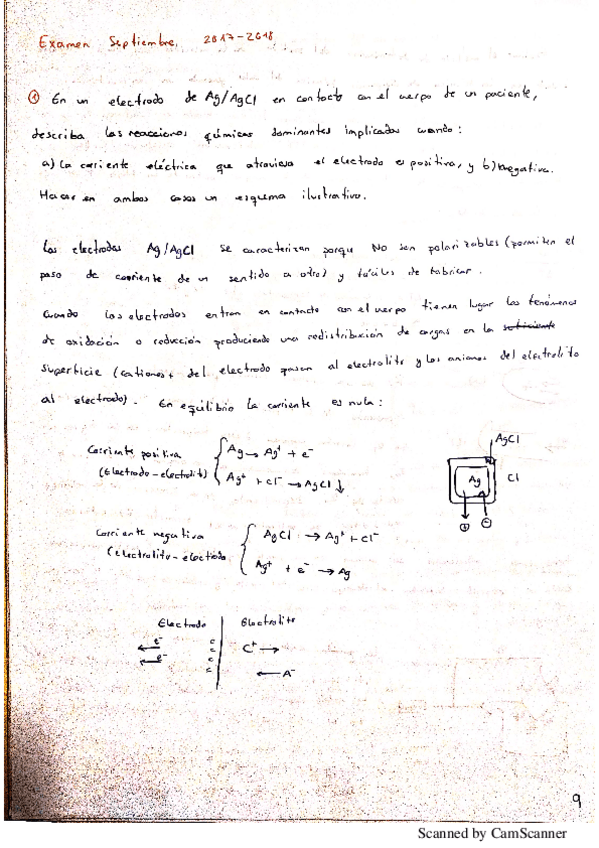 Examen Septiembre, 2017-2018
① En un electrodo de Ag/AgCl en contacto con el cuerpo de un paciente,
describa las reacciones químicas dominantes implicadas cuando:
a) La corriente eléctrica que atraviesa el electrodo es positiva, y b) negativa.
Hacer en ambos casos un esquema ilustrativo.
Los electrodos Ag/AgCl se caracterizan porque NO son polarizables (permiten el
paso de corriente de un sentido a otro) y fáciles de fabricar.
Cuando los electrodos entran en contacto con el cuerpo tienen lugar los fenómenos
de oxidación o reducción produciendo una redistribución de cargas en la
superficie (cationes+ del electrodo pasan al electrolito y los aniones del electrolito
al electrodo). En equilibrio la corriente es nula:
Corriente positiva
(Electrodo-electrolito)
Ag → Ag⁺ + e⁻
Ag⁺ + Cl⁻ → AgCl ↓
AgCl
Ag
Cl
⊕ ⊖
Corriente negativa
(electrolito-electrodo
AgCl → Ag⁺ + Cl⁻
Ag⁺ + e⁻ → Ag
Electrodo Electrolito
e⁻ c C⁺ →
e⁻ c
c ← A⁻
c
9
Scanned by CamScanner